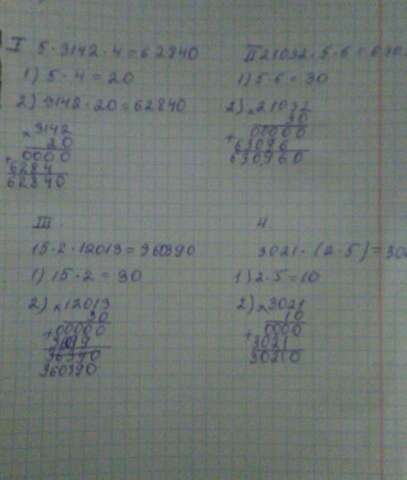 I 5·3142·4=62840
1) 5·4=20
2) 3142·20=62840
×3142
20
+0000
6284
62840
II 21032·5·6=
1) 5·6=30
2) ×21032
30
+00000
63096
630960
III
15·2·12013=360390
1) 15·2=30
2) ×12013
30
+00000
360390
4
3021·(2·5)=
1) 2·5=10
2) ×3021
10
+0000
3021
30210